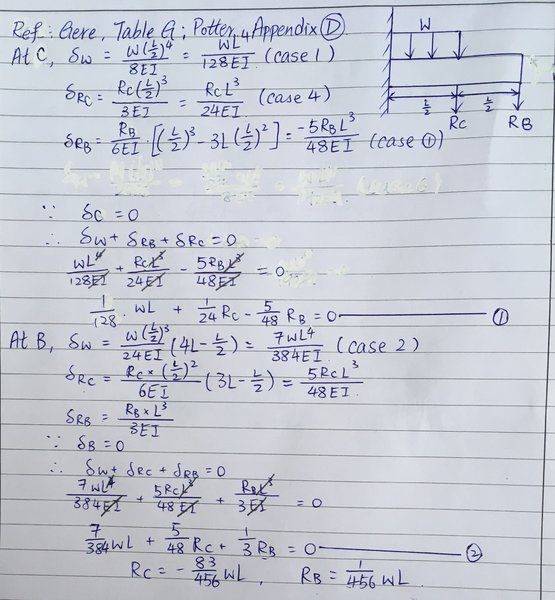 Ref: Gere, Table G; Potter, Appendix D
At C, δw = W(L/2)^4 / 8EI = WL^4 / 128EI (case 1)
δRC = RC(L/2)^3 / 3EI = RCL^3 / 24EI (case 4)
δRB = RB / 6EI · [(L/2)^3 - 3L(L/2)^2] = -5RBL^3 / 48EI (case ①)
∵ δC = 0
∴ δw + δRB + δRC = 0
WL^4 / 128EI + RCL^3 / 24EI - 5RBL^3 / 48EI = 0
1/128 · WL + 1/24 RC - 5/48 RB = 0 ①
At B, δw = W(L/2)^3 / 24EI (4L - L/2) = 7WL^4 / 384EI (case 2)
δRC = RC × (L/2)^2 / 6EI (3L - L/2) = 5RCL^3 / 48EI
δRB = RB × L^3 / 3EI
∵ δB = 0
∴ δw + δRC + δRB = 0
7WL^4 / 384EI + 5RCL^3 / 48EI + RBL^3 / 3EI = 0
7/384 WL + 5/48 RC + 1/3 RB = 0 ②
RC = - 83/456 WL, RB = 1/456 WL
W
L/2 L/2
RC RB